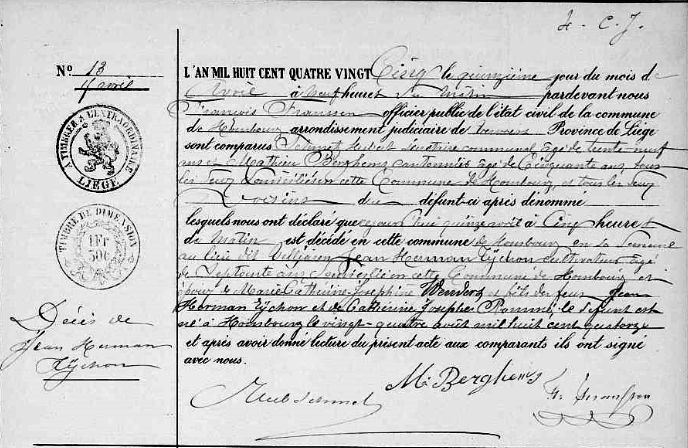 N. C. J.
N° 13
4 avril
TIMBRE A L'EXTRAORDINAIRE
LIÈGE
TIMBRE DE DIMENSION
1 FR
30C
Décès de
Jean Herman
Tÿchon
L'AN MIL HUIT CENT QUATRE VINGT Cinq le quinzième jour du mois de
Avril à neuf heures du matin pardevant nous
François Franssen officier public de l'état civil de la commune
de Hombourg arrondissement judiciaire de Verviers Province de Liége
sont comparus Hubert secrétaire communal, âgé de trente neuf
ans et Mathieu Berghens cantonnier âgé de Cinquante ans tous
les deux domiciliés en cette Commune de Hombourg et tous les deux
Voisins du défunt ci après dénommé
lesquels nous ont déclaré que cejourd'hui quinze avril à Cinq heures
du matin est décédé en cette commune de Hombourg en sa demeure
au lieu dit Jean Herman Tÿchon cultivateur âgé
de Septante ans domicilié en cette Commune de Hombourg et
époux de Marie Catherine Josephine et fils des feus Jean
Herman Tÿchon et de Catherine Josephe le défunt est
né à Hombourg le vingt-quatre avril mil huit cent quatorze
et après avoir donné lecture du présent acte aux comparants ils ont signé
avec nous.
M. Berghens